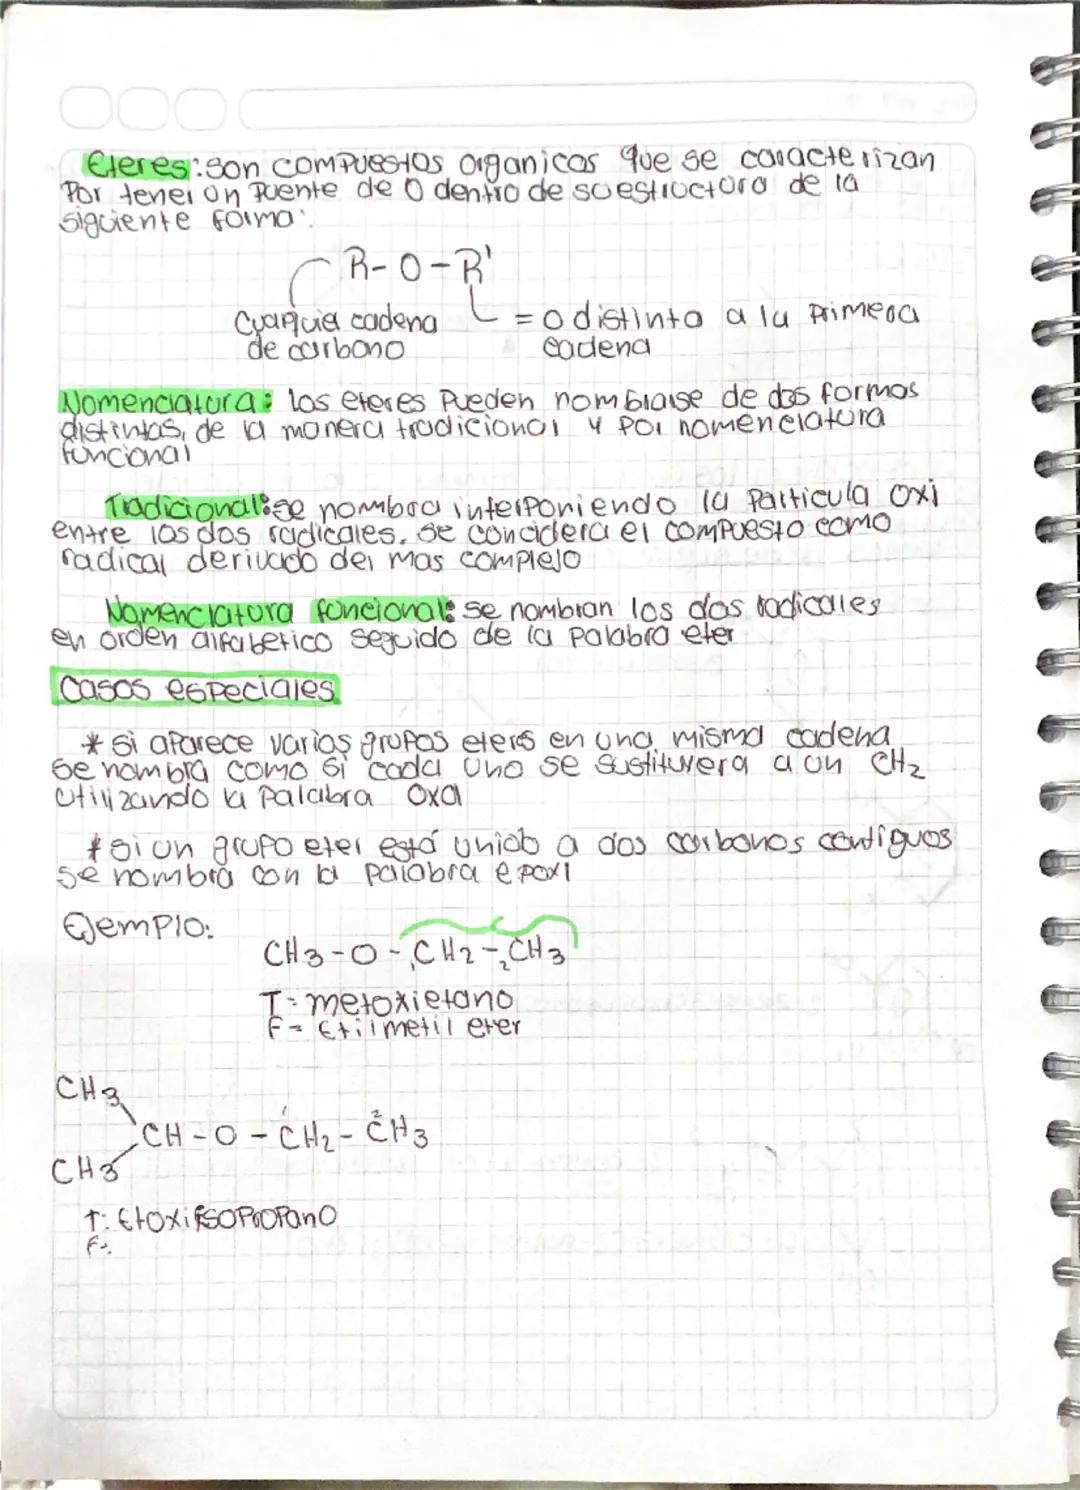 Eteres: son compuestos organicos que se caracterizan
Por tener un Puente de O dentro de su estructura de la
siguiente forma:
R-O-R'
Cualquier cadena = o distinto a la Primera
de carbono cadena
Nomenclatura: los eteres Pueden nombrarse de dos formas
distintas, de la manera tradicional y por nomenclatura
funcional
Tradicional: se nombra interponiendo la Particula oxi
entre los dos radicales. se concidera el compuesto como
radical derivado del mas complejo
Nomenclatura funcional: se nombran los dos radicales
en orden alfabetico seguido de la palabra eter
Casos especiales
* Si aparece varios grupos eters en una misma cadena
se nombra como si cada uno se sustituyera a un CH2
utilizando la palabra oxa
* Si un grupo eter está unido a dos carbonos contiguos
se nombra con la palabra epoxi
Ejemplo:
CH3-O-1CH2-2CH3
T= metoxietano
F= Etilmetil eter
CH3
1 2
CH-O-CH2-CH3
CH3
T: Etoxi isopropano
F: